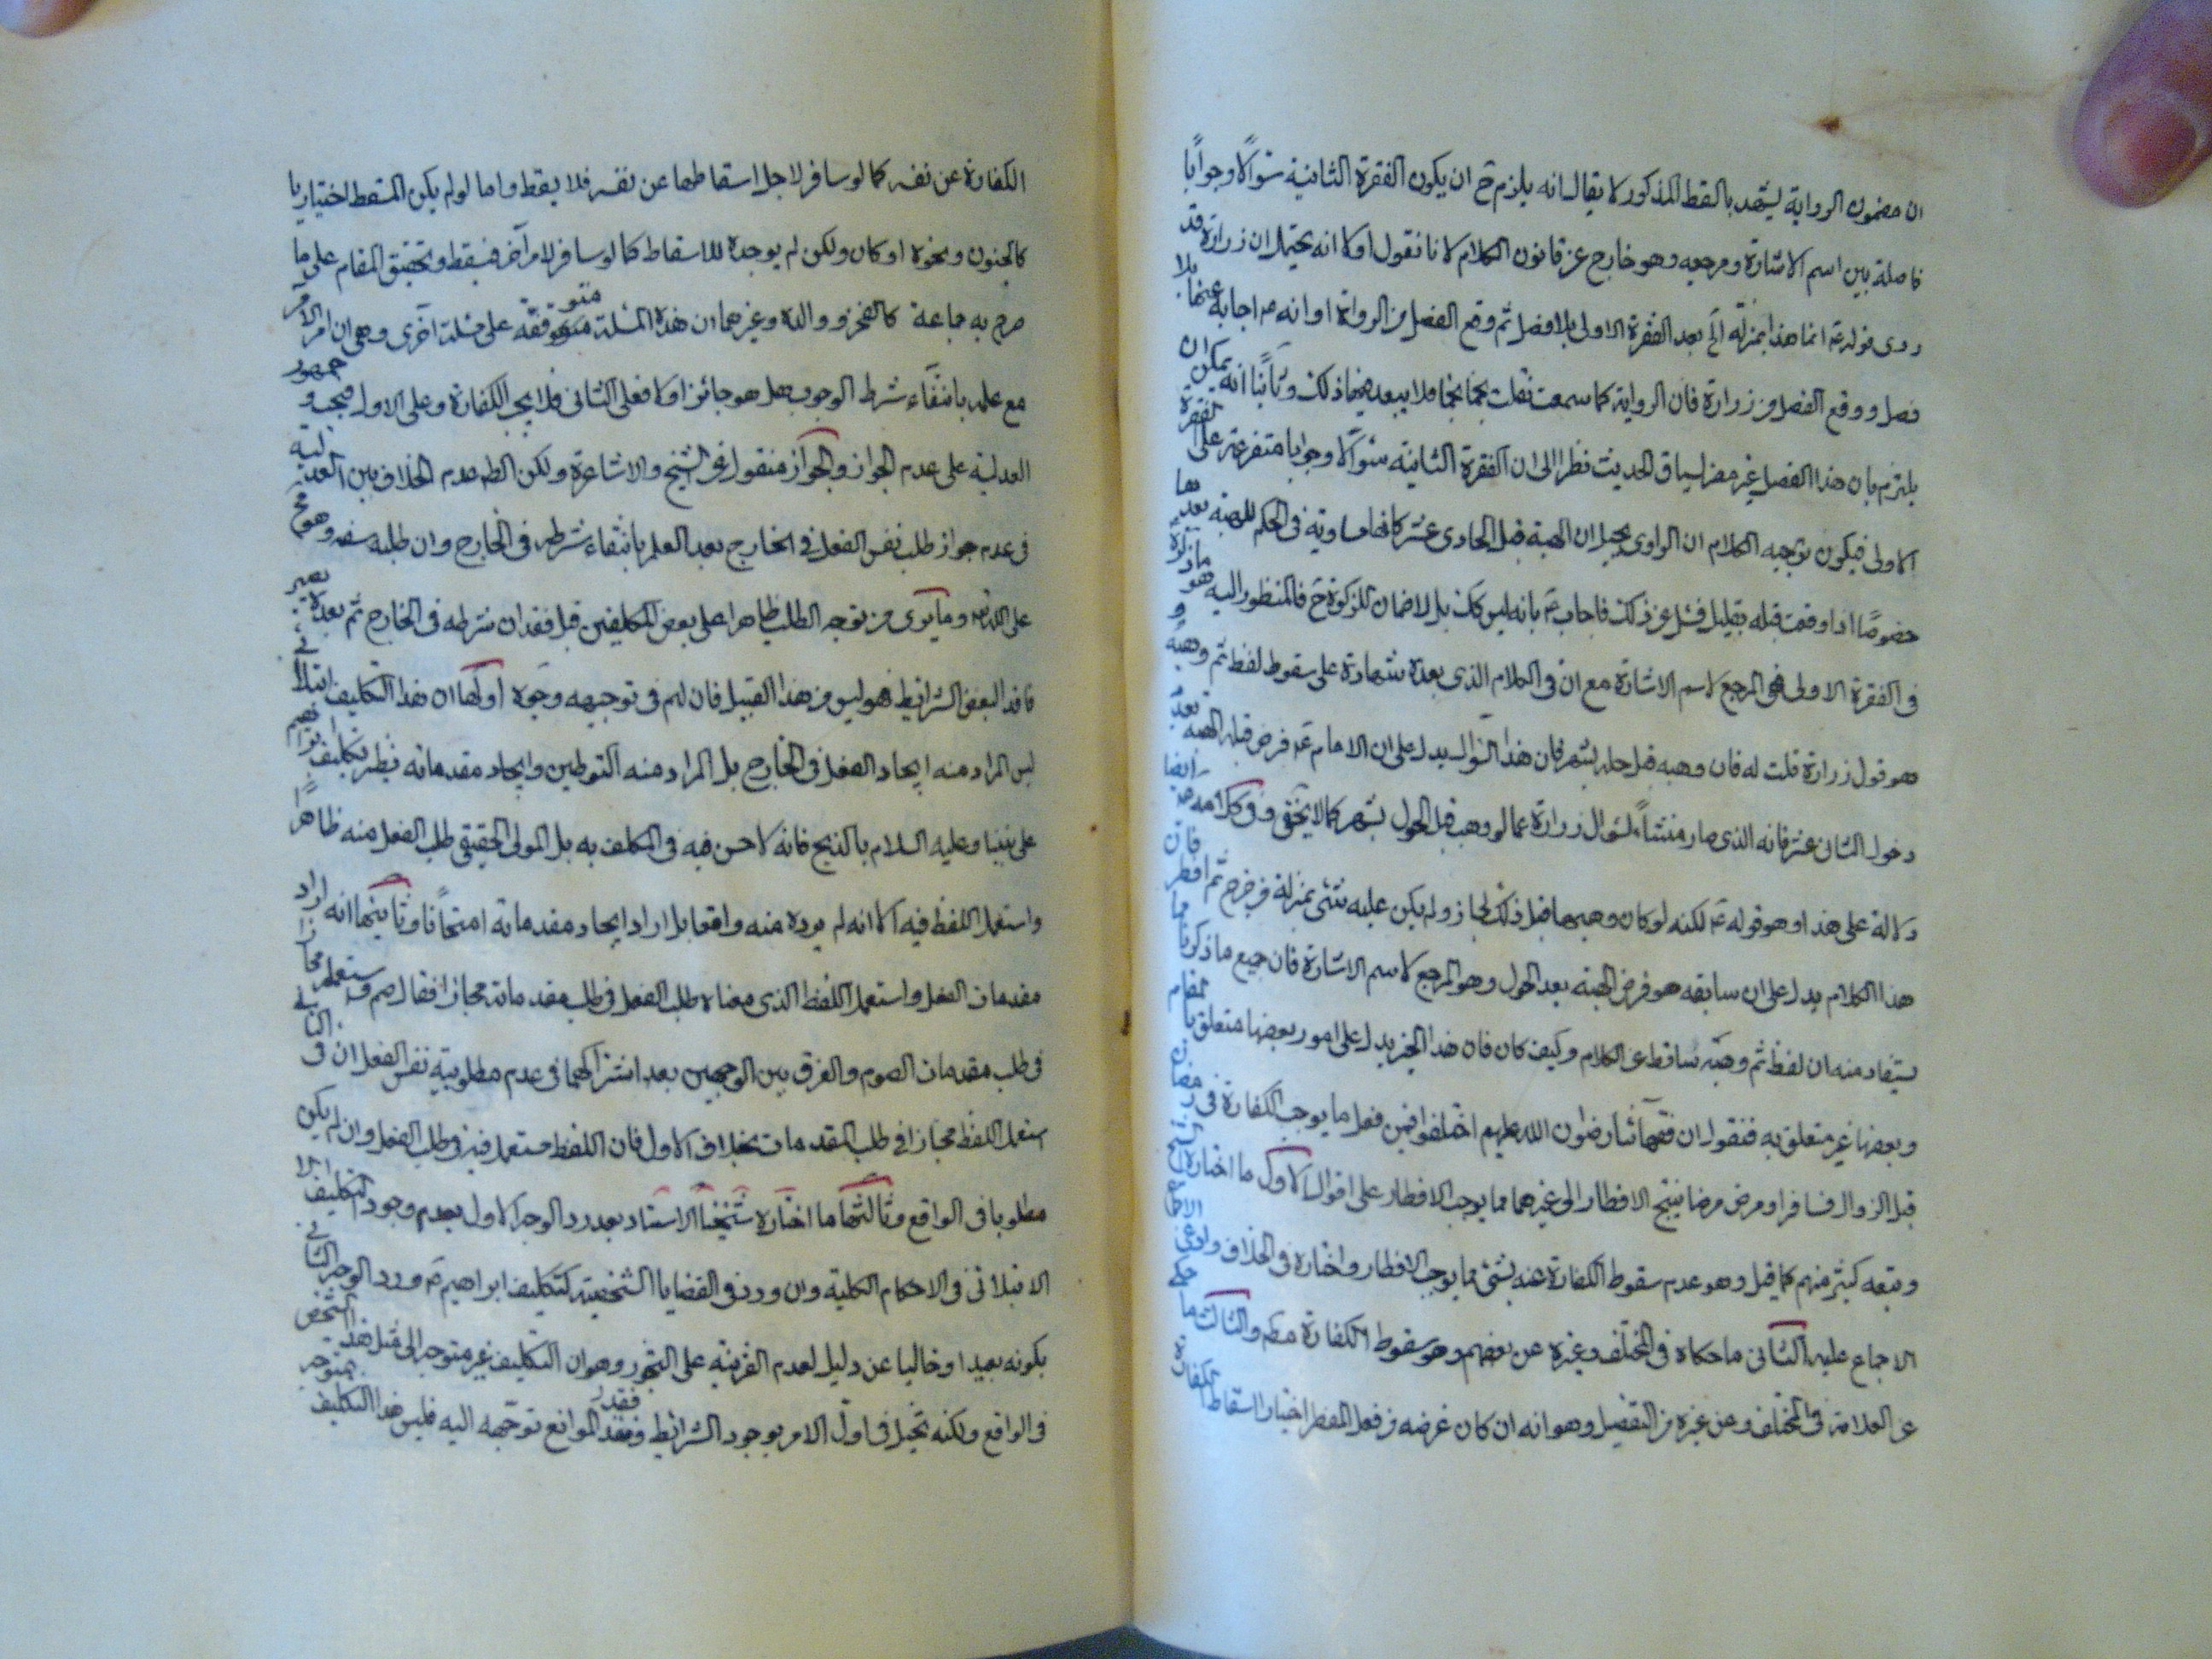 ان مضمون الرواية ليشهد بالسقط المذكور لا يقال انه يلزم ح ان يكون الفقرة الثانية سؤالا وجوابا
فاصلة بين اسم الاشارة ومرجعه وهو خارج عن قانون الكلام لانا نقول اولا انه يحتمل ان زرارة قد
روى قوله ع انما هذا بمنزلة الخ بعد الفقرة الاولى بلا فصل ثم وقع الفصل من الرواة او انه ع اجابه عنها بلا
فصل ووقع الفصل من زرارة فان الرواية كما سمعت نقلت نجما نجما فلا يبعد فيها ذلك وثانيا انه يمكن ان
يلتزم بان هذا الفصل غير مضر لسياق الحديث نظرا الى ان الفقرة الثانية سئوالا وجوابا متفرعة على الفقرة
الاولى فيكون توجيه الكلام ان الراوى تخيل ان الهبة قبل الحادى عشر كانها مساوية فى الحكم للهبة بعدها
خصوصا اذا وقعت قبله بقليل فسئل عن ذلك فاجاب ع بانه ليس كك بل لا ضمان للزكوة ح فالمنظور اليه هو ما ذكره
فى الفقرة الاولى فهى المرجع لاسم الاشارة مع ان فى الكلام الذى بعده شهادة على سقوط لفظ ثم وهبه و
هو قول زرارة قلت له فان وهبه قبل حله بشهر فان هذا السؤال يدل على ان الامام ع فرض قبله الهبة بعد
دخول الثانى عشر فانه الذى صار منشأ لسؤال زرارة عما لو وهب قبل الحول بشهر كما لا يخفى وفى كلامه ع ايضا
دلالة على هذا وهو قوله ع لكنه لو كان وهبها قبل ذلك لجاز ولم يكن عليه شئ بمنزلة من خرج ثم افطر فان
هذا الكلام يدل على ان سابقه هو فرض الهبة بعد الحول وهو المرجع لاسم الاشارة فان جميع ما ذكرنا مما
يستفاد منه ان لفظ ثم وهبه ساقط عن الكلام وكيف كان فان هذا الخبر يدل على امور بعضها متعلق بالمقام
وبعضها غير متعلق به فنقول ان فقهائنا رضوان الله عليهم اختلفوا فيمن فعل ما يوجب الكفارة فى رمضان
قبل الزوال فسافر او مرض مرضا يبيح الافطار الى غيرهما مما يوجب الافطار على اقوال الاول ما اختاره الشيخ
وتبعه كثير منهم كما قيل وهو عدم سقوط الكفارة عنه بشئ مما يوجب الافطار واختاره فى الخلاف وادعى الاجماع
الاجماع عليه الثانى ما حكاه فى المختلف وغيره عن بعضهم وهو سقوط الكفارة مطم والثالث ما حكى
عن العلامة فى المختلف وعن غيره من التفصيل وهو انه ان كان غرضه من فعل المفطر اختيارا اسقاط الكفارة
الكفارة عن نفسه كما لو سافر لاجل اسقاطها عن نفسه فلا يسقط واما لو لم يكن المسقط اختياريا
كالجنون ونحوه او كان ولكن لم يوجده للاسقاط كما لو سافر لامر آخر فيسقط وتحقيق المقام على ما
صرح به جماعة كالفخر ووالده وغيرهما ان هذه المسئلة متوقفة على مسئلة اخرى وهى ان امر الامر
مع علمه بانتفاء شرط الوجوب هل هو جائز اولا فعلى الثانى فلا يجب الكفارة وعلى الاول فيجب وجمهور
العدلية على عدم الجواز والجواز منقول عن الشيخ والاشاعرة ولكن الظ عدم الخلاف بين العدلية
فى عدم جواز طلب نفس الفعل فى الخارج بعد العلم بانتفاء شرطه فى الخارج وان طلبه سفه وهو قبيح
على الله تعم وما يرى من توجه الطلب ظاهرا على بعض المكلفين قبل فقدان شرطه فى الخارج ثم بعده يصير
فاقد البعض الشرائط فهو ليس من هذا القبيل فان لهم فى توجيهه وجوه اولها ان هذا التكليف ابتلائى
ليس المراد منه ايجاد الفعل فى الخارج بل المراد منه التوطين وايجاد مقدماته نظير تكليف ابراهيم
على نبينا وعليه السلام بالذبح فانه لا حسن فيه فى المكلف به بل المولى الحقيقى طلب الفعل منه ظاهرا
واستعمل اللفظ فيه الا انه لم يرده منه واقعا بل اراد ايجاد مقدماته امتحانا وثانيها انه اراد
مقدمات الفعل واستعمل اللفظ الذى معناه طلب الفعل فى طلب مقدماته مجازا فقال صم واستعمله مجازا
فى طلب مقدمات الصوم والفرق بين الوجهين بعد اشتراكهما فى عدم مطلوبية نفس الفعل ان فى الثانى
استعمل اللفظ مجازا فى طلب المقدمات بخلاف الاول فان اللفظ مستعمل فيه فى طلب الفعل وان لم يكن
مطلوبا فى الواقع وثالثها ما اختاره شيخنا الاستاد بعد رد الوجه الاول بعدم وجود التكليف
الابتلائى فى الاحكام الكلية وان ورد فى القضايا الشخصية كتكليف ابراهيم ع ورد الوجه الثانى
بكونه بعيدا وخاليا عن دليل لعدم القرينة على التجوز وهو ان التكليف غير متوجه الى مثل هذا الشخص
فى الواقع ولكنه تخيل فى اول الامر بوجود الشرائط وفقد الموانع توجهه اليه فليس هذا التكليف بمتوجه